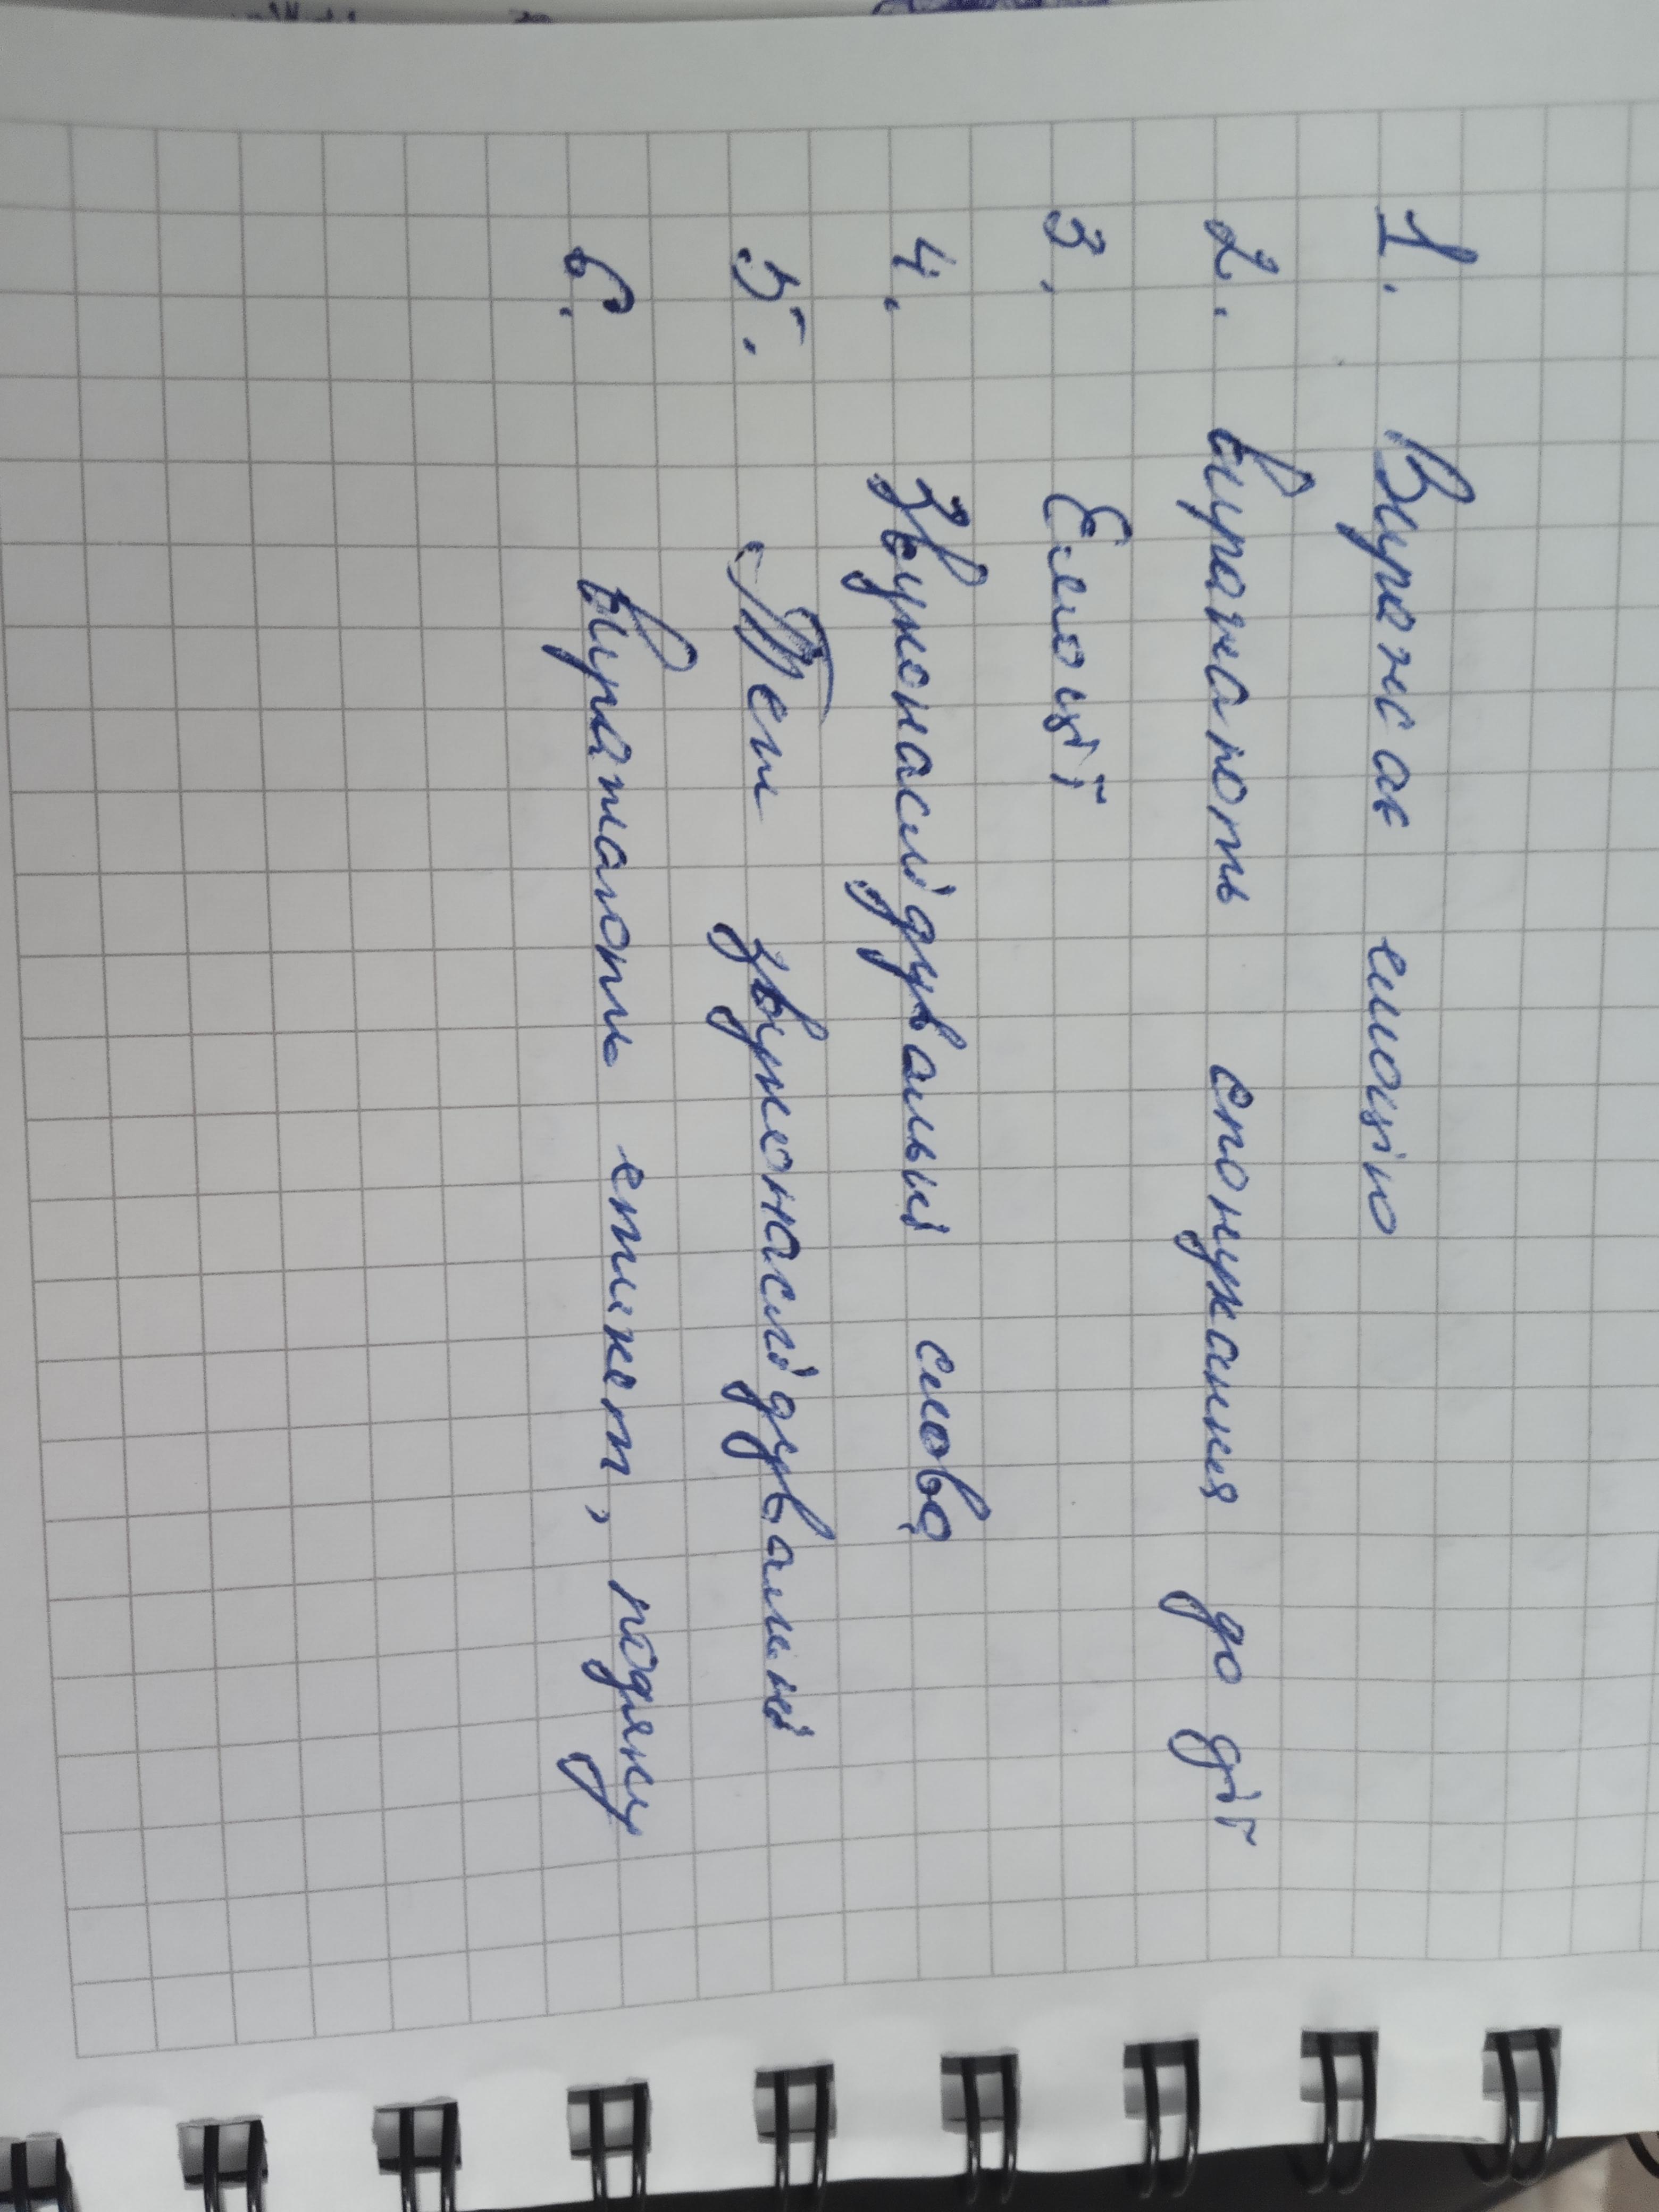 1. Виражає емоцію
2. Виражають спонукання до дії
3. Емоції
4. Звуконаслідувальні слова
5. Теж звуконаслідувальні
6. Виражають етикет, подяку